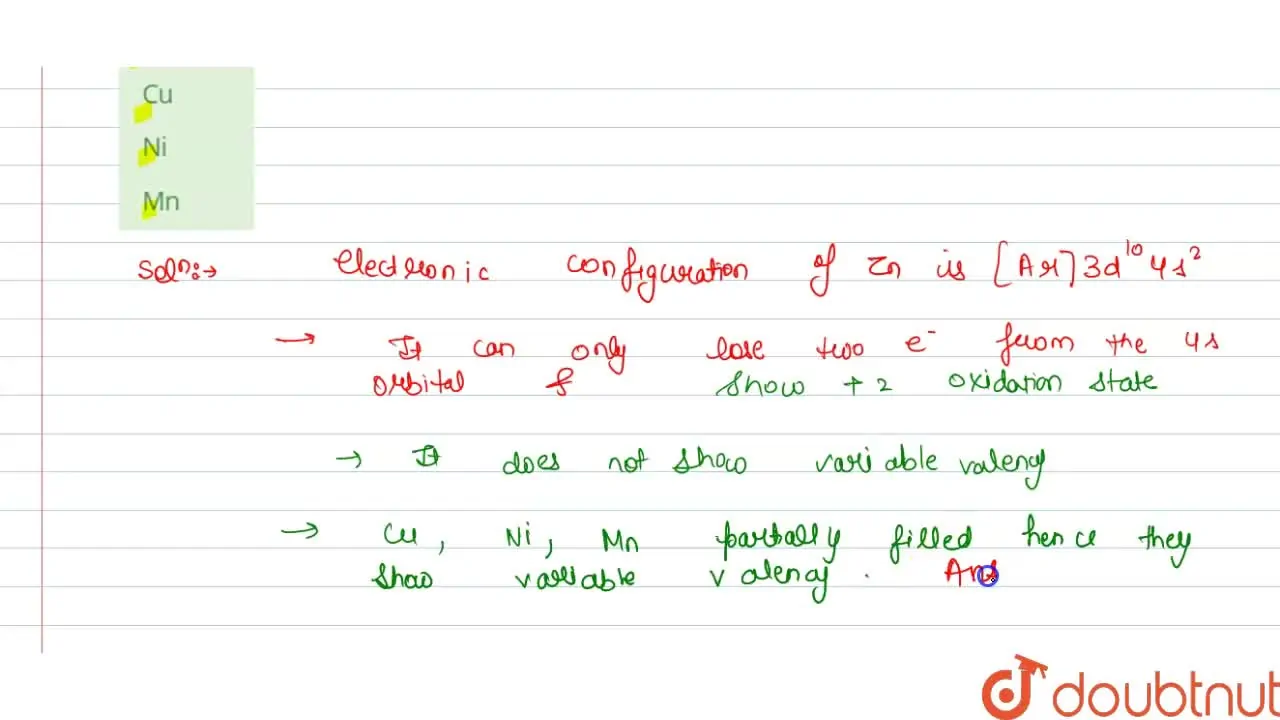 Cu
Ni
Mn
Soln:→ electronic configuration of Zn is [Ar]3d¹⁰4s²
→ It can only lose two e⁻ from the 4s
orbital & show +2 oxidation state
→ It does not show variable valency
→ Cu, Ni, Mn partially filled hence they
show variable valency. Ans
doubtnut